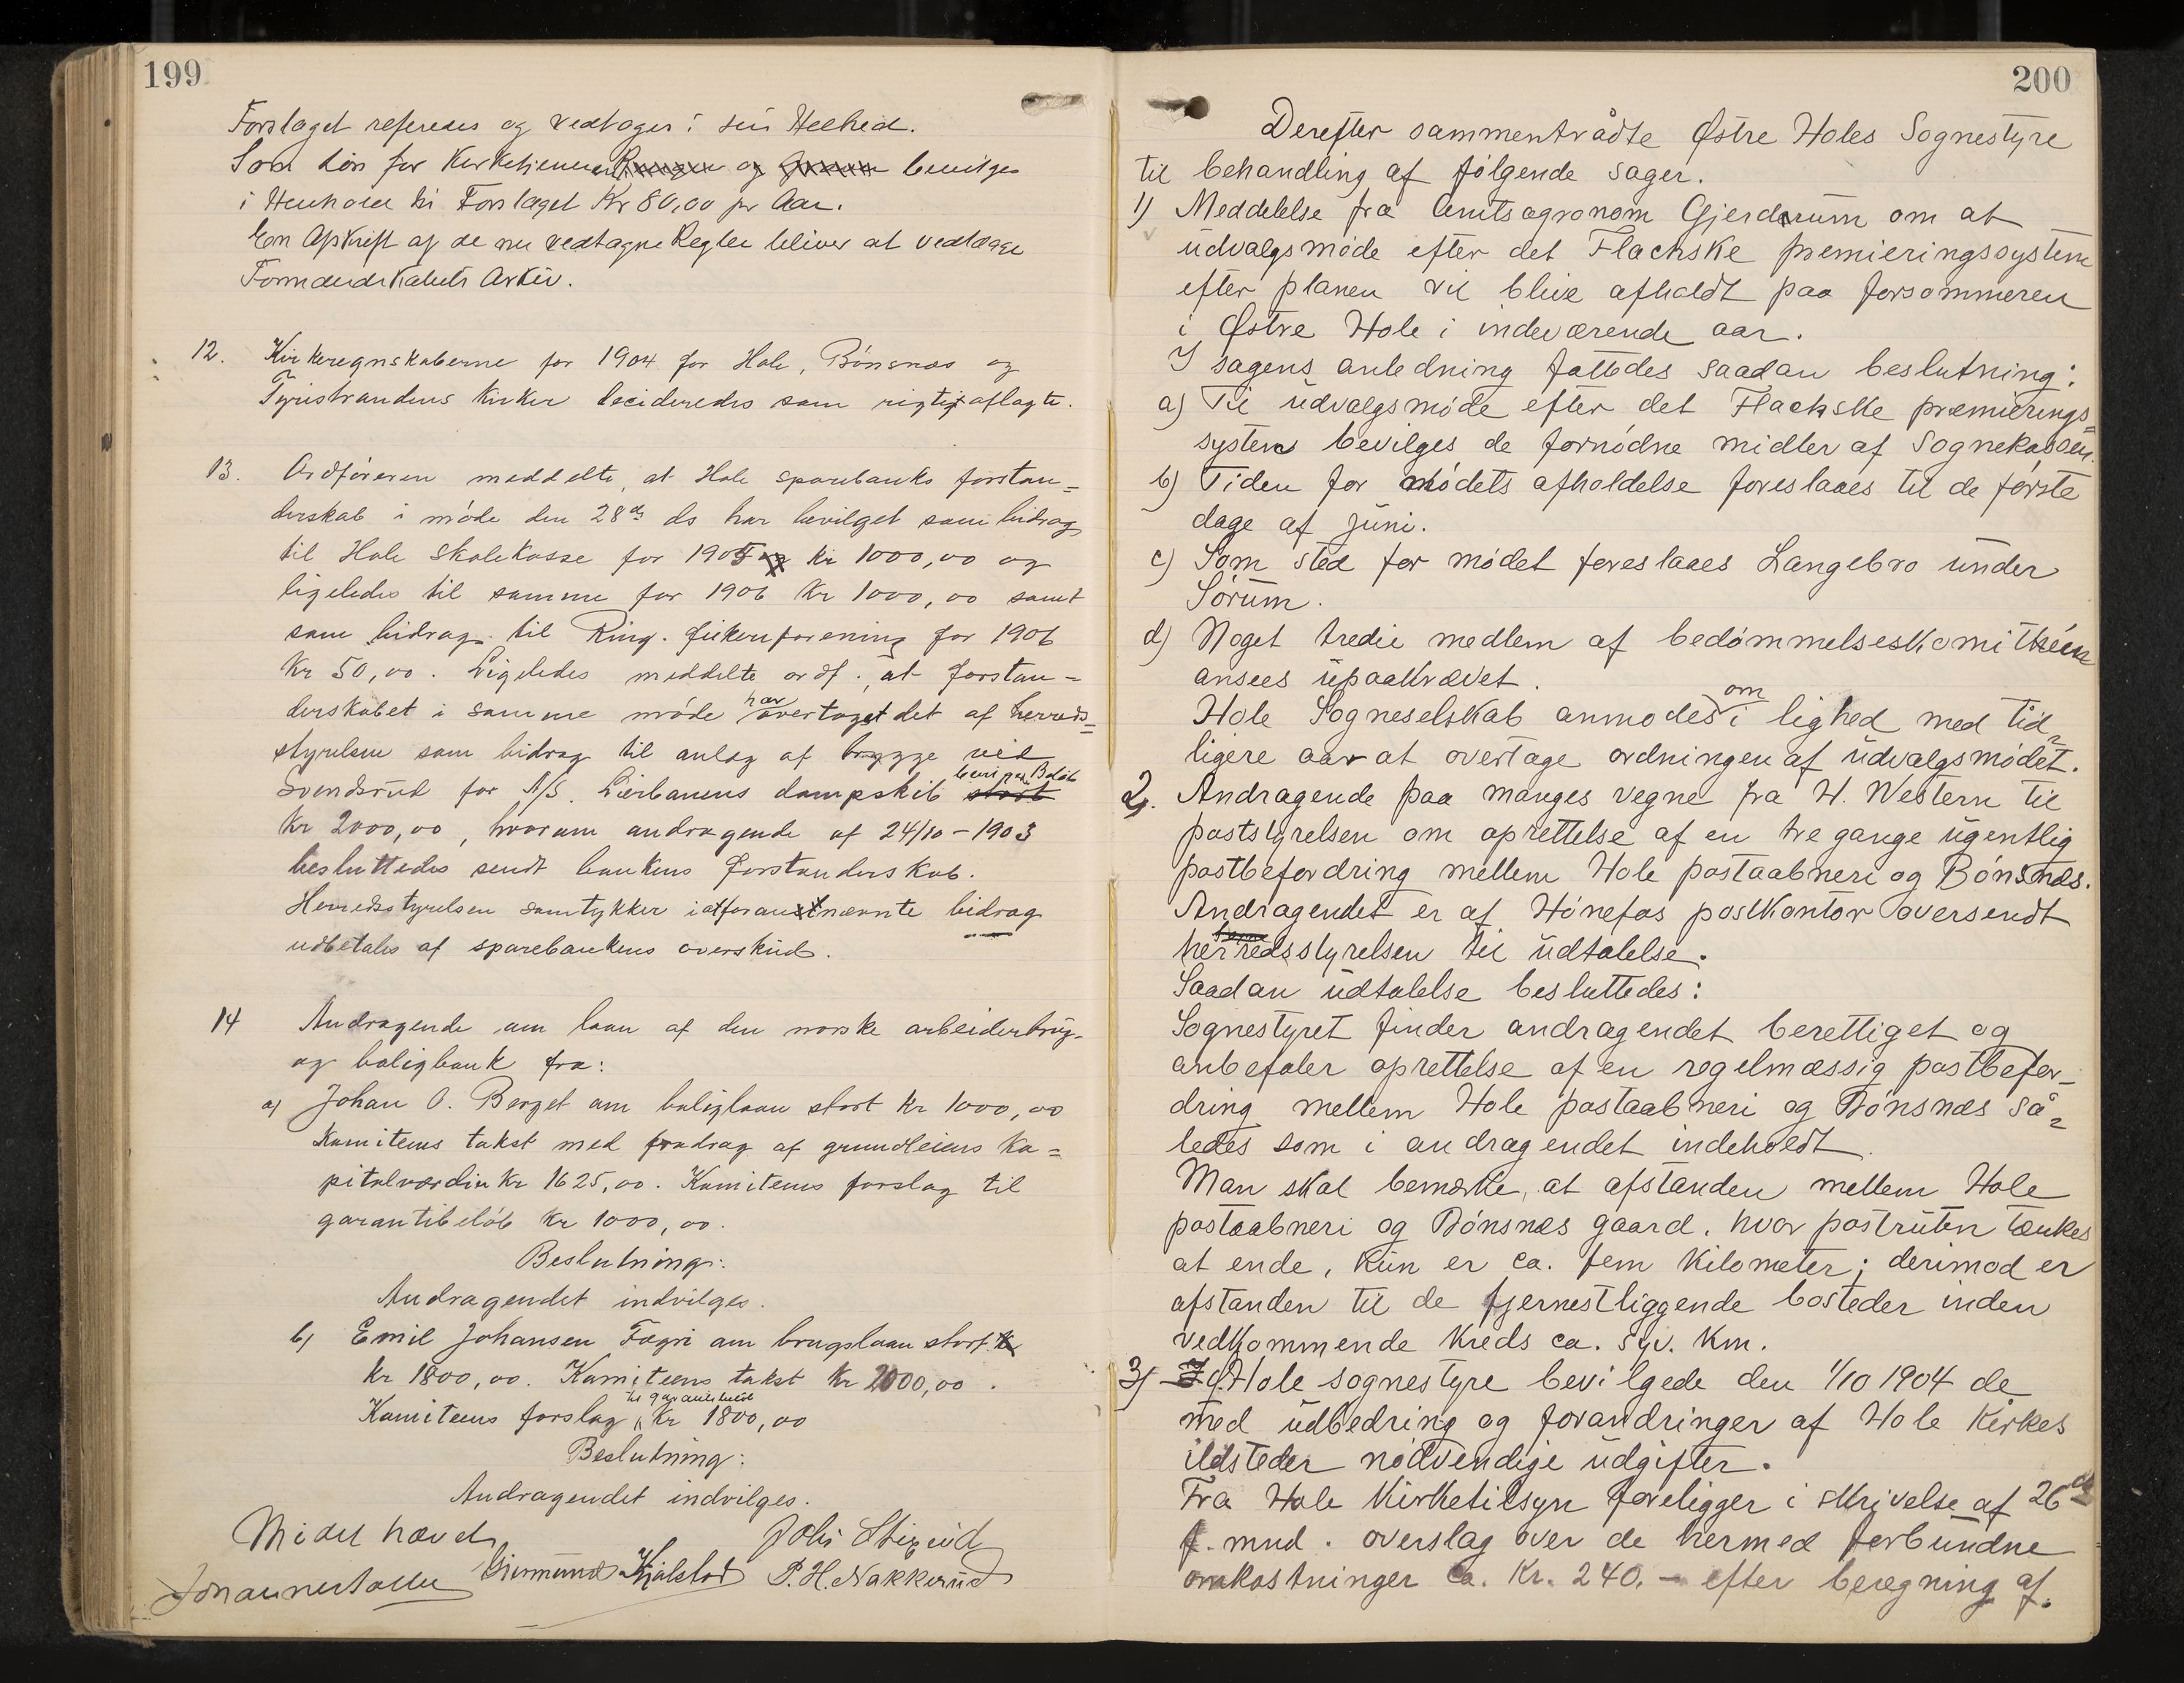 199
Forslaget referedes og vedtages i sin Helhed.
Som Løn for Kirketjeneren og bevilges
i Henhold til Forslaget Kr 80,00 pr Aar.
En Afskrift af de nu vedtagne Regler bliver at vedlægge
Formandskabets Arkiv.
12. Kirkeregnskaberne for 1904 for Hole, Bönsnæs og
Tyristrandens Kirker decideredes som rigtig aflagte.
13. Ordföreren meddelte, at Hole sparebanks forstan=
derskab i möde den 28de ds har bevilget som bidrag
til Hole skolekasse for 1905 kr 1000,00 og
ligeledes til samme for 1906 Kr 1000,00 samt
som bidrag til Ring. fiskeriforening for 1906
Kr 50,00. Ligeledes meddelte ordf., at forstan=
derskabet i samme möde har overtaget det af herreds=
styrelsen som bidrag til anlæg af brygge ved
Svendsrud for A/S. Lierbanens dampskib bevilgede Beløb
Kr 2000,00, hvorom andragende af 24/10-1903
besluttedes sendt bankens forstanderskab.
Herredsstyrelsen samtykker i at forannævnte bidrag
udbetales af sparebankens overskud.
14 Andragende om laan af den norske arbeiderbrug-
og boligbank fra:
a) Johan O. Berget om boliglaan stort Kr 1000,00
Komiteens takst med fradrag af grundleiens ka=
pitalværdi Kr 1625,00. Komiteens forslag til
garantibelöb Kr 1000,00.
Beslutning:
Andragendet indvilges.
b) Emil Johansen Fægri om brugslaan stort
Kr 1800,00. Komiteens takst Kr 2000,00.
Komiteens forslag til garantibeløb Kr 1800,00
Beslutning:
Andragendet indvilges.
Mödet hævet
Johs Stixrud
Gurmund Kjølstad P. H. Nakkerud
200
Derefter sammentrådte Østre Holes Sognestyre
til behandling af følgende sager.
1) Meddelelse fra Amtsagronom Gjerdrum om at
udvalgsmøde efter det Flachske premieringssystem
efter planen vil blive afholdt paa forsommeren
i Østre Hole i indeværende aar.
I sagens anledning fattedes saadan beslutning:
a) Til udvalgsmøde efter det Flachske præmierings=
system bevilges de fornødne midler af Sognekassen.
b) Tiden for mødets afholdelse foreslaaes til de første
dage af juni.
c) Som sted for mødet foreslaaes Langebro under
Sørum.
d) Noget tredie medlem af bedømmelseskomitkéen
ansees upaakrævet.
Hole Sogneselskab anmodes om i lighed med tid=
ligere aar at overtage ordningen af udvalgsmødet.
2. Andragende paa manges vegne fra H. Western til
poststyrelsen om oprettelse af en tre gange ugentlig
postbefordring mellem Hole postaabneri og Bønsnæs.
Andragendet er af Hønefos postkontor oversendt
herredsstyrelsen til udtalelse.
Saadan udtalelse besluttedes:
Sognestyret finder andragendet berettiget og
anbefaler oprettelse af en regelmæssig postbefor=
dring mellem Hole postaabneri og Bønsnæs så=
ledes som i andragendet indeholdt.
Man skal bemærke, at afstanden mellem Hole
postaabneri og Bønsnæs gaard, hvor postruten tænkes
at ende, kun er ca. fem kilometer; derimod er
afstanden til de fjernestliggende bosteder inden
vedkommende kreds ca. syv. km.
3) Hole sognestyre bevilgede den 1/10 1904 de
med udbedring og forandringer af Hole Kirkes
ildsteder nødvendige udgifter.
Fra Hole Kirketilsyn foreligger i skrivelse af 26de
f. mnd. overslag over de hermed forbundne
omkostninger ca. Kr. 240.- efter beregning af.